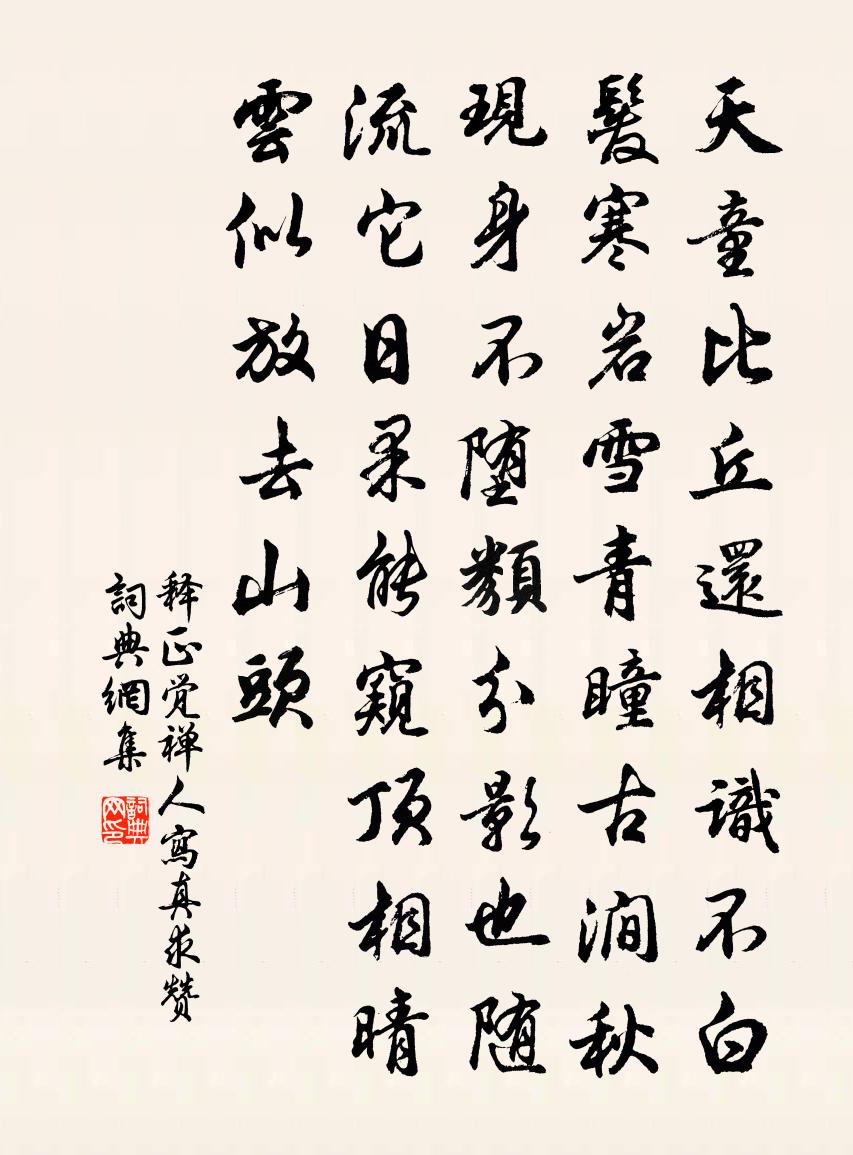 天童比丘還相識不白
髮寒岩雪青瞳古澗秋
現身不堕類分影也随
流它日果能窺頂相晴
雲似放去山頭
释正觉禅人寫真求贊
詞典網集
詞典网印